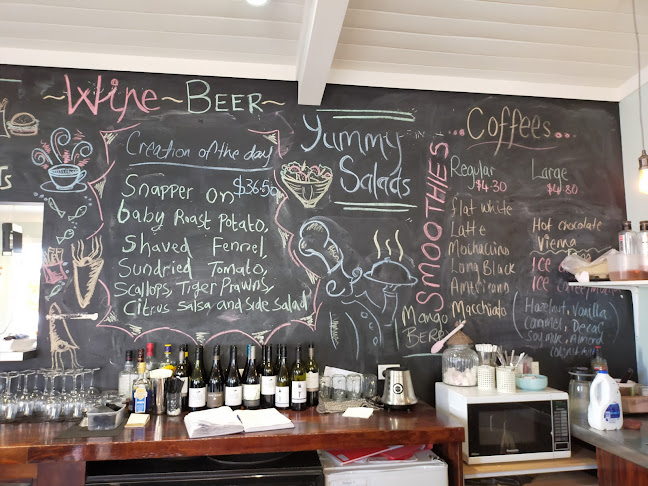 ~Wine~BEER~
Creation of the day
Snapper on $36.50
baby Roast Potato,
Shaved Fennel,
Sundried Tomato,
Scallops, Tiger Prawns,
Citrus Salsa and side Salad
Yummy
Salads
SMOOTHIES
Mango
...Coffees...
Regular
$4.30
Large
$4.80
flat white
Latte
Mochaccino
Long Black
Americano
Macchiato
Hot chocolate
Vienna
ICE
ICE
(Hazelnut, Vanilla
Caramel, Decaf,
Soy milk, Almond